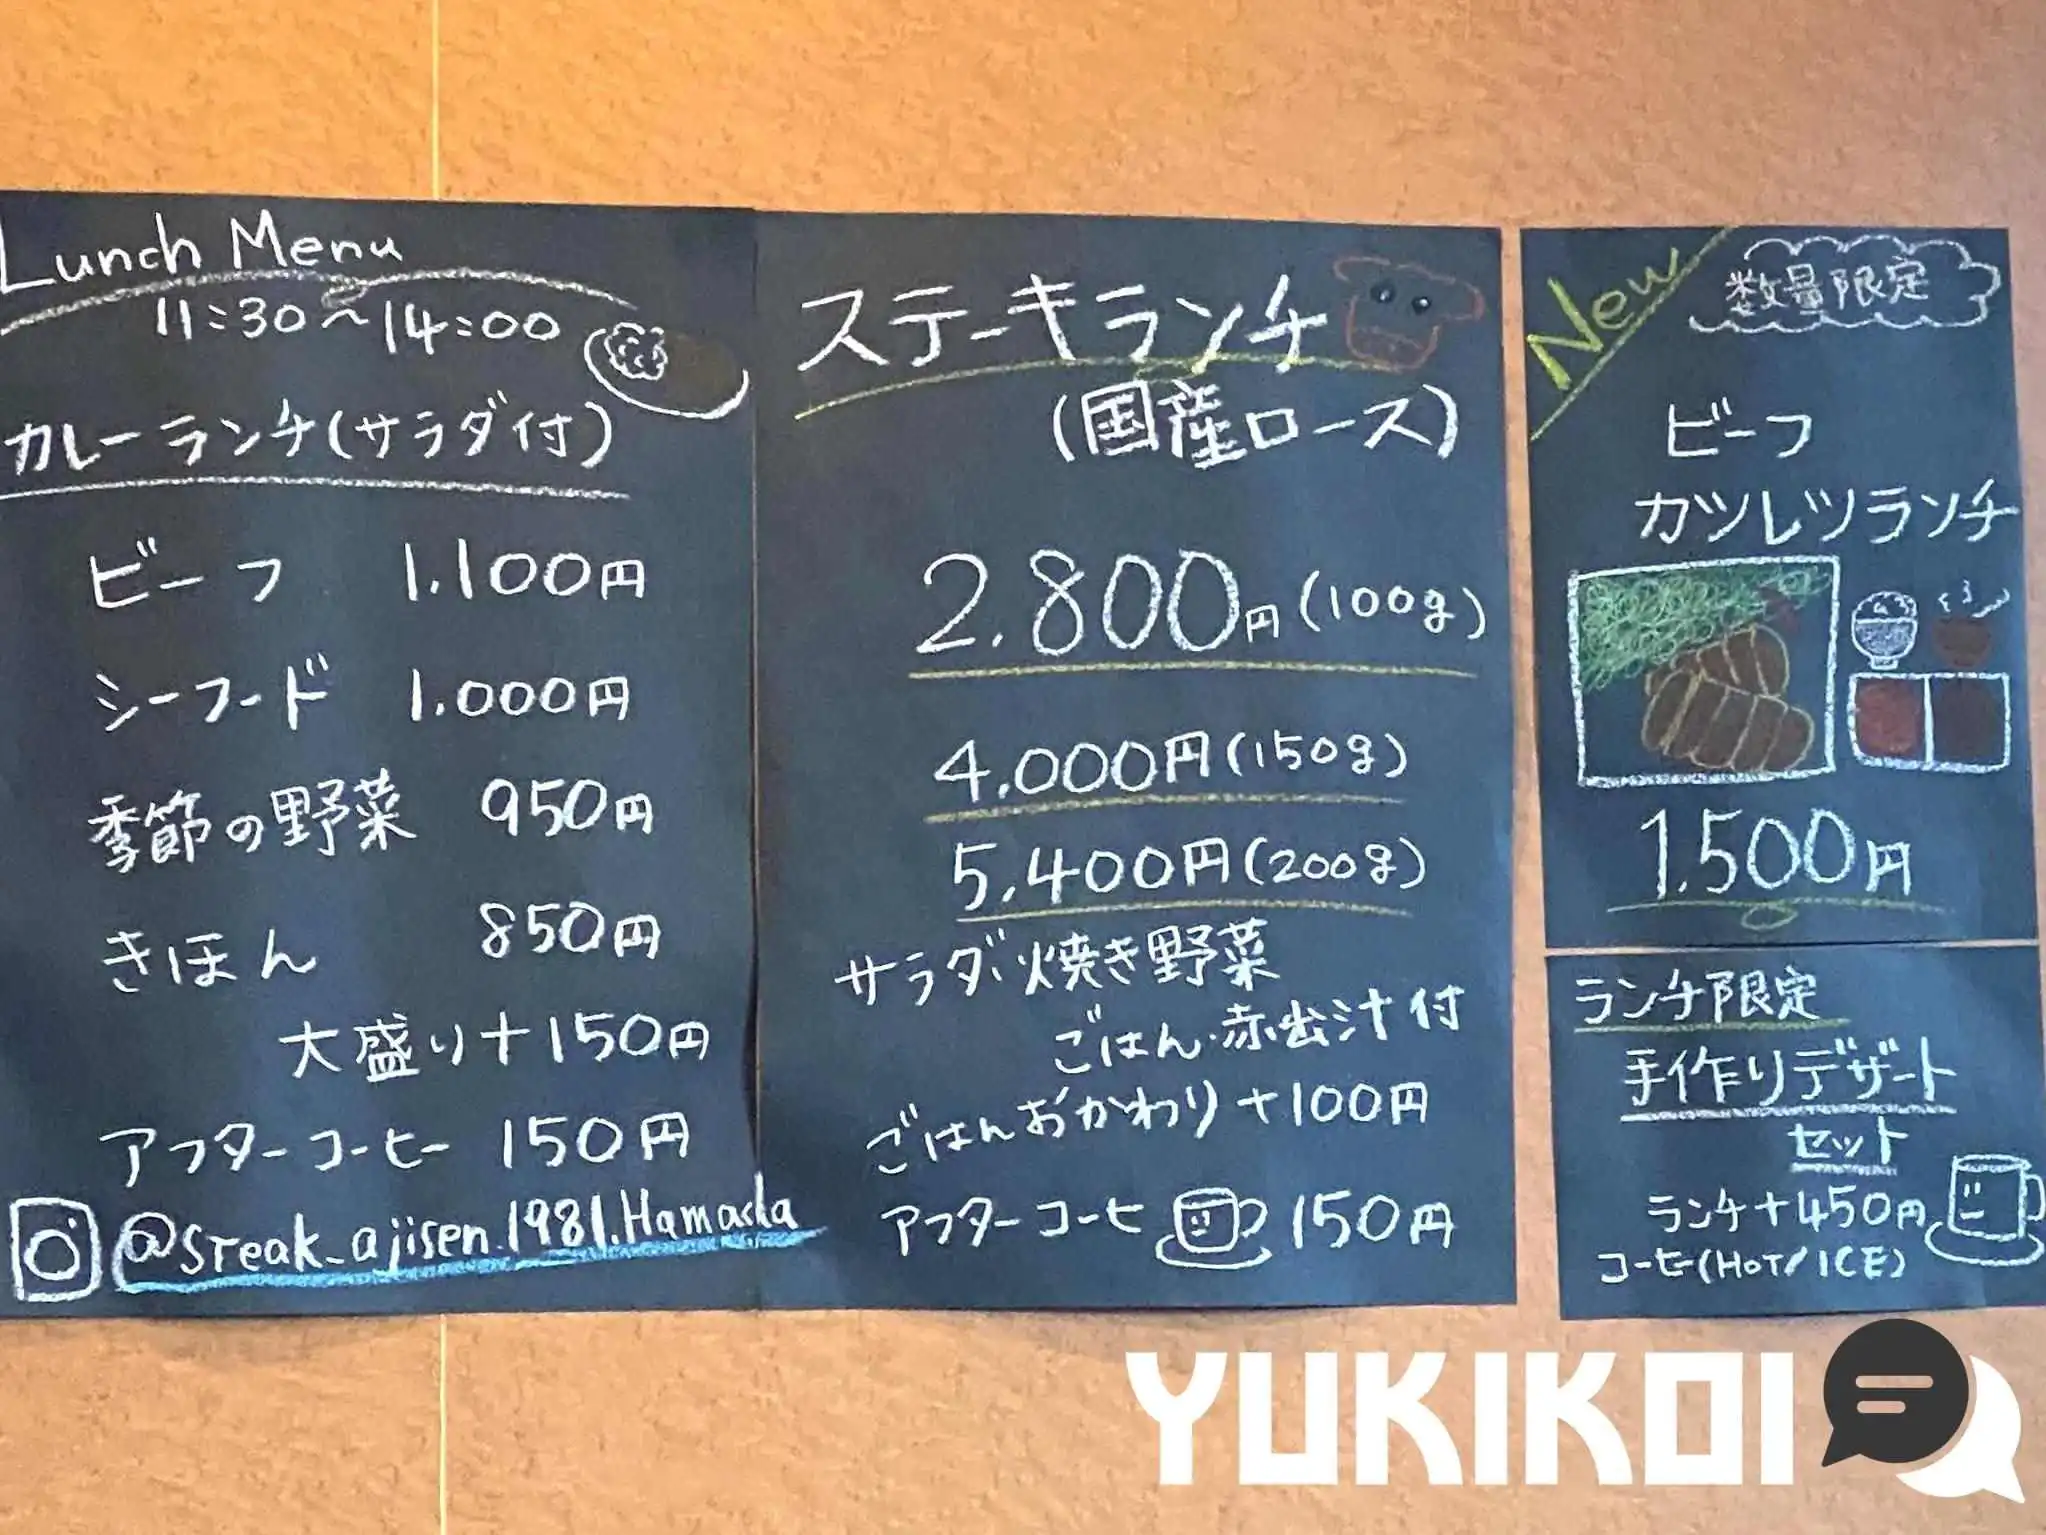 Lunch Menu
11:30〜14:00
カレーランチ(サラダ付)
ビーフ 1.100円
シーフード 1.000円
季節の野菜 950円
きほん 850円
大盛り+150円
アフターコーヒー 150円
@steak_ajisen.1981.Hamada
ステーキランチ
(国産ロース)
2.800円(100g)
4.000円(150g)
5,400円(200g)
サラダ、焼き野菜
ごはん・赤出汁付
ごはんおかわり+100円
アフターコーヒ 150円
New
数量限定
ビーフ
カツレツランチ
1.500円
ランチ限定
手作りデザート
セット
ランチ+450円
コーヒー(HOT/ICE)
YUKIKOI